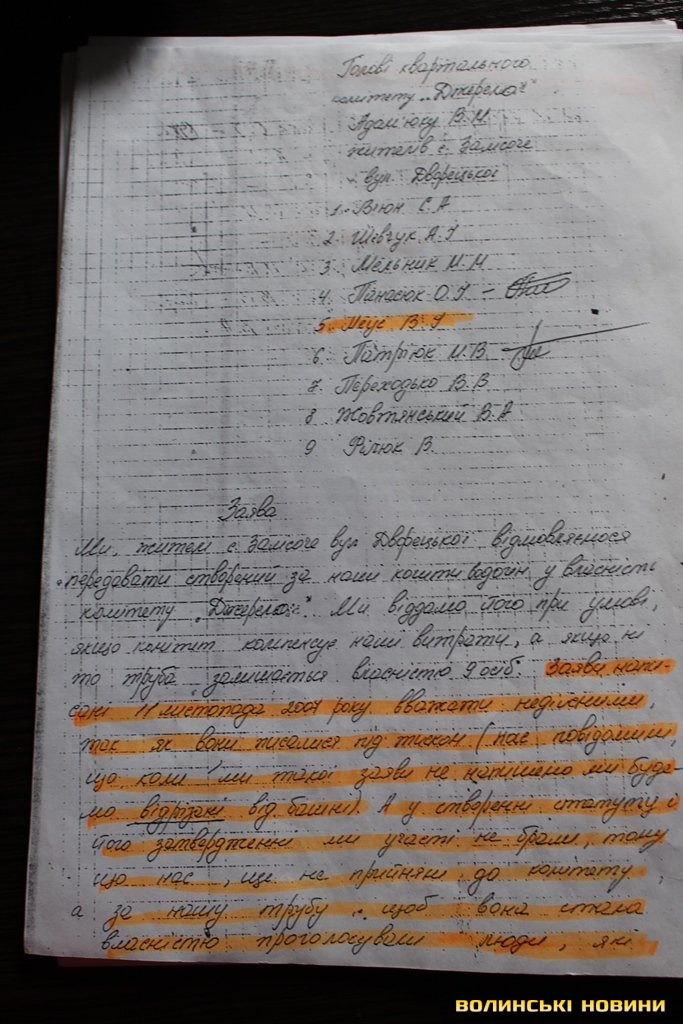 Голові квартального
комітету „Джерело"
Адам'юку В.М.
жителів с. Замсоче
вул. Дворецької
1. В'юн С.А
2. Шевчук А.І
3. Мельник М.М
4. Панасюк О.І -
5. Меус В.І
6. Патріюк М.В. -
7 Переходько В.В
8 Жовтянський В.А
9 Рілюк В.
Заява
Ми, жителі с. Замсоче вул Дворецької відмовляємося
передавати створений за наші кошти водогін у власність
комітету „Джерело". Ми віддамо його при умові,
якщо комітет компенсує наші витрати, а якщо ні
то труба залишається власністю 9 осіб. Заяви напи-
сані 11 листопада 2007 року вважати недійсними,
так як вони писалися під тиском (нас повідомили,
що коли ми такої заяви не напишемо ми буде-
мо відрізані від башні). А у створенні статуту і
його затвердженні ми участі не брали, тому
що нас, ще не прийняли до комітету,
а за нашу трубу щоб вона стала
власністю проголосували люди, які
ВОЛИНСЬКІ НОВИНИ